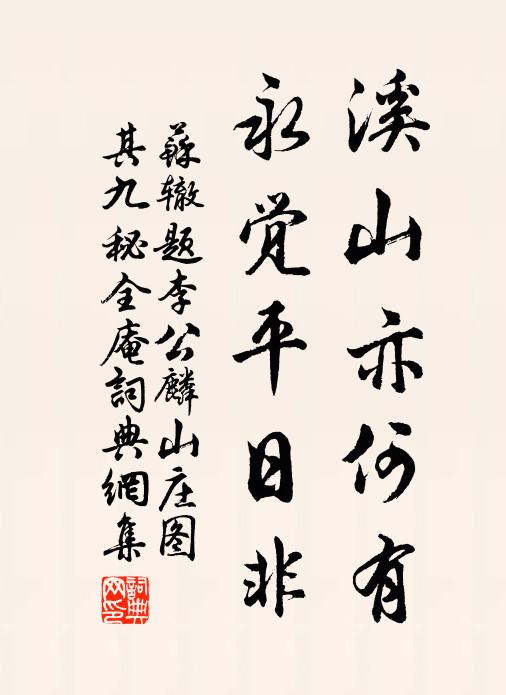 溪山亦何有
永觉平日非
蘇辙题李公麟山庄图
其九秘全庵詞典網集
詞典
网印